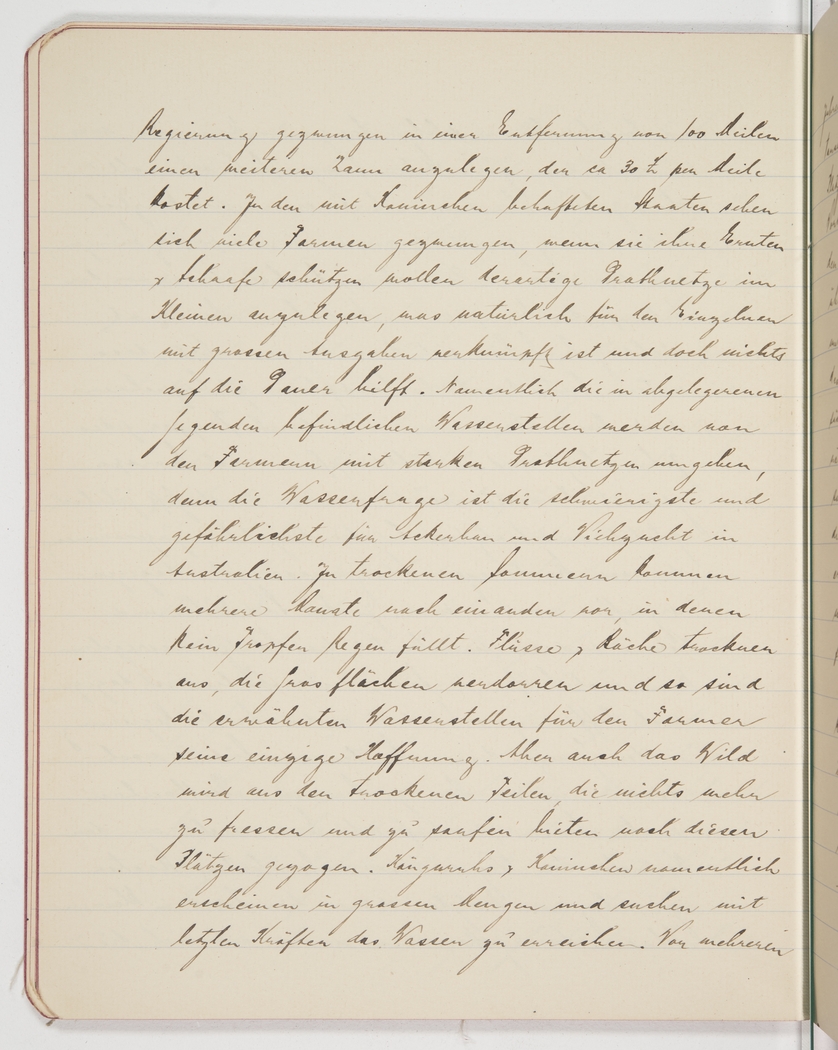 Regierung gezwungen in einer Entfernung von 100 Meilen
einen weiteren Zaun anzulegen, der ca 30 £ per Meile
kostet. In den mit Kaninchen behafteten Staaten sehen
sich viele Farmer gezwungen, wenn sie ihre Ernten
& Schaafe schützen wollen derartige Drathnetze im
Kleinen anzulegen, was natürlich für den Einzelnen
mit grossen Ausgaben verknüpft ist und doch nichts
auf die Dauer hilft. Namentlich die in abgelegenen
Gegenden befindlichen Wasserstellen werden von
den Farmern mit starken Drathnetzen umgeben,
denn die Wasserfrage ist die schwierigste und
gefährlichste für Ackerbau und Viehzucht in
Australien. In trockenen Sommern kommen
mehrere Monate nach einander vor, in denen
kein Tropfen Regen fällt. Flüsse & Bäche trocknen
aus, die Grasflächen verdorren und so sind
die erwähnten Wasserstellen für den Farmer
seine einzige Hoffnung. Aber auch das Wild
wird aus den trockenen Teilen, die nichts mehr
zu fressen und zu saufen bieten nach diesen
Plätzen gezogen. Känguruhs & Kaninchen namentlich
erscheinen in grossen Mengen und suchen mit
letzten Kräften das Wasser zu erreichen. Vor mehreren